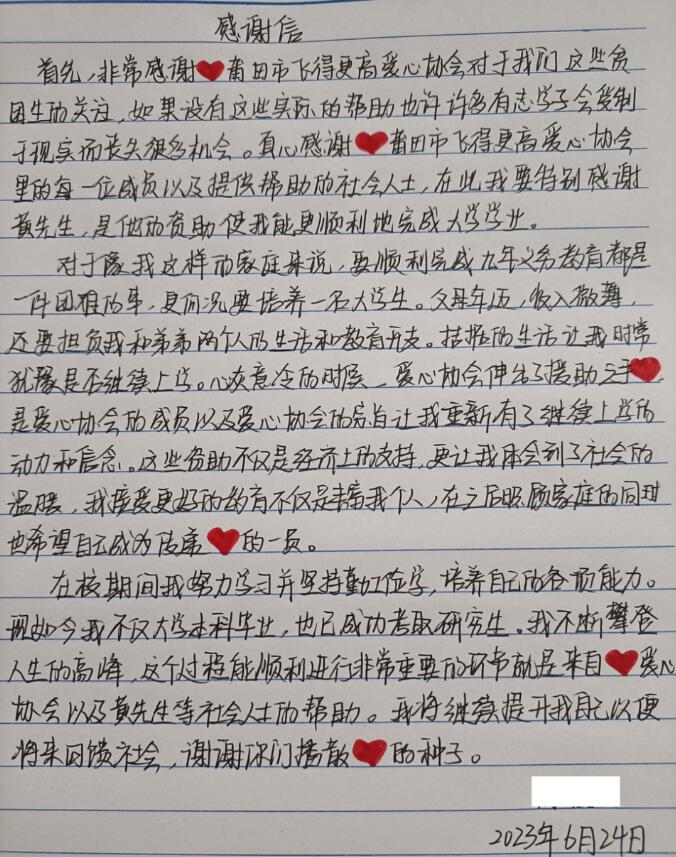 感谢信
首先，非常感谢❤莆田市飞得更高爱心协会对于我们这些贫
困生的关注，如果没有这些实际的帮助也许许多有志学子会受制
于现实而丧失很多机会。真心感谢❤莆田市飞得更高爱心协会
里的每一位成员以及提供帮助的社会人士，在此我要特别感谢
黄先生，是他的资助使我能更顺利地完成大学学业。
对于像我这样的家庭来说，要顺利完成九年义务教育都是
一件困难的事，更何况要培养一名大学生。父母年迈，收入微薄，
还要担负我和弟弟两个人的生活和教育开支。拮据的生活让我时常
犹豫是否继续上学。心灰意冷的时候，爱心协会伸出了援助之手❤，
是爱心协会的成员以及爱心协会的宗旨让我重新有了继续上学的
动力和信念。这些资助不仅是经济上的支持，更让我体会到了社会的
温暖，我接受更好的教育不仅是丰富我个人，在之后照顾家庭的同时
也希望自己成为传席❤的一员。
在校期间我努力学习并坚持勤工俭学，培养自己的各项能力。
现如今我不仅大学本科毕业，也已成功考取研究生。我不断攀登
人生的高峰，这个过程能顺利进行非常重要的环节就是来自❤爱心
协会以及黄先生等社会人士的帮助。我将继续提升我自己以便
将来回馈社会，谢谢你们播散❤的种子。
2023年6月24日